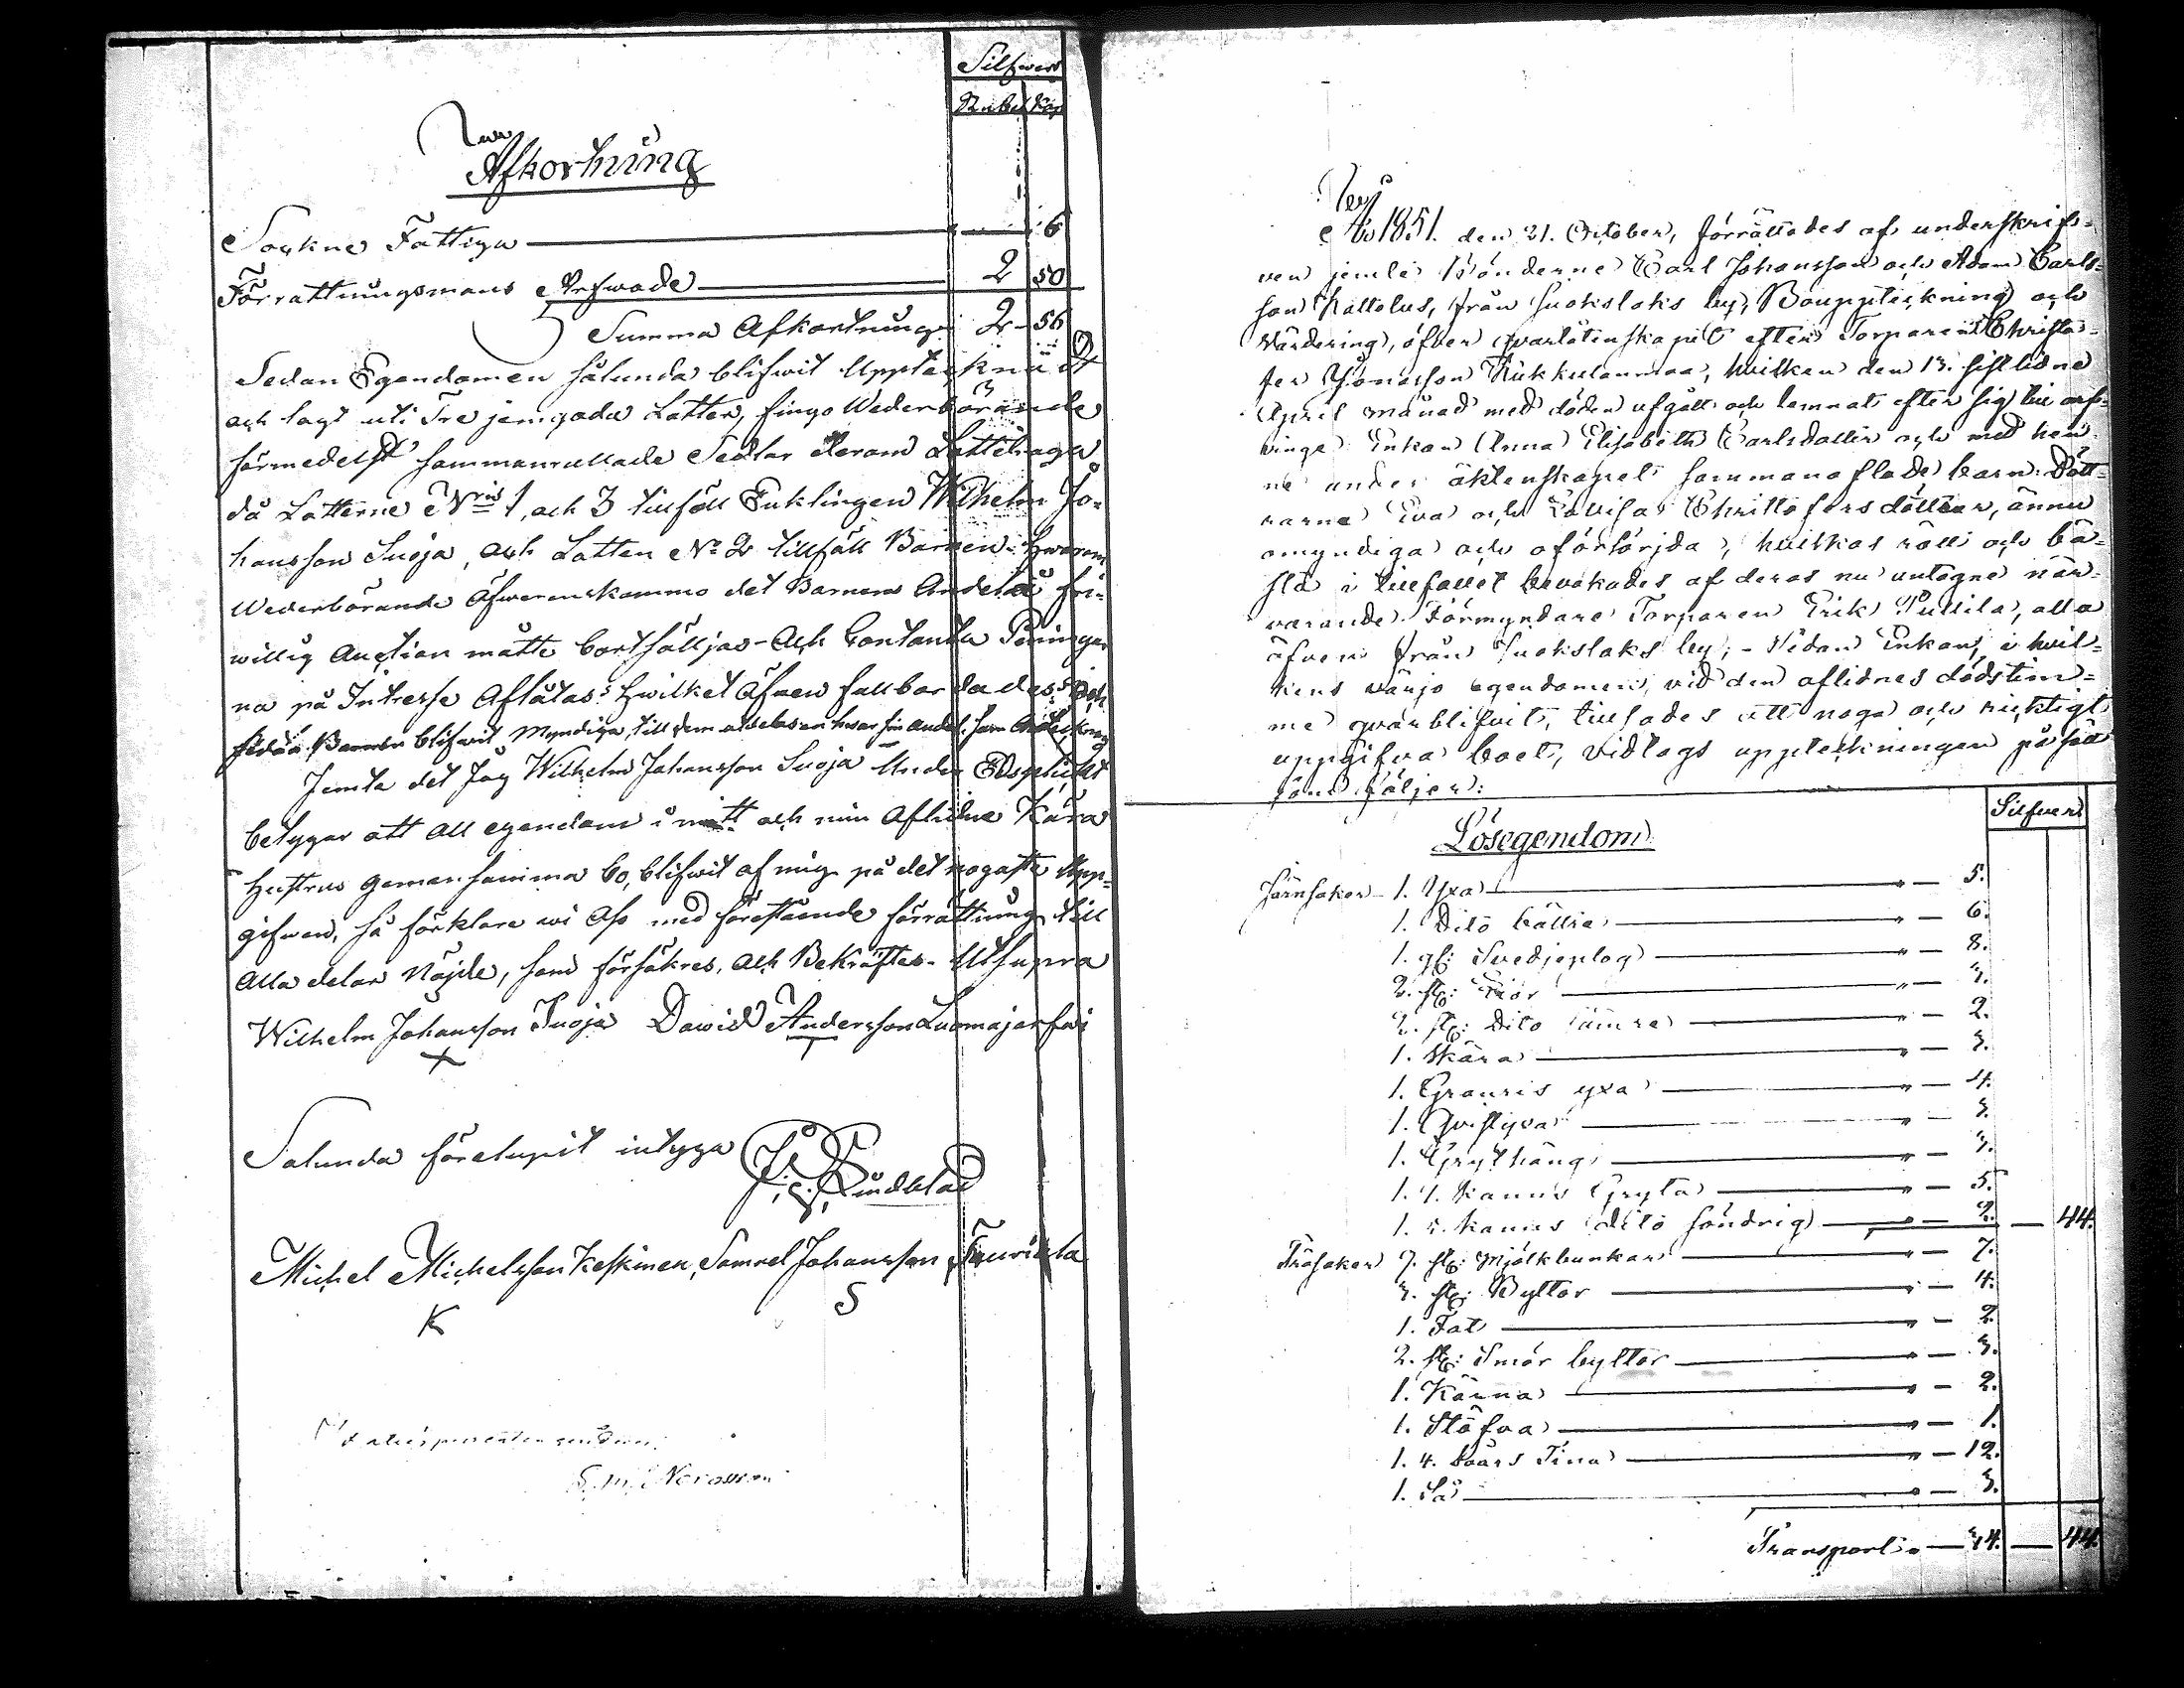 Silfver
Rubel Kop
Afkortning
Sockne Fattiga 6
Förrattningsmans Arfwade 2 50
Summa Afkortning 2 56
Sedan Egendomen sålunda blifwit Upptecknad
och lagt uti Tre jemgoda Lotter, fingo Wederbörande
förmedelst sammanrullade Sedlar deras Lottdraga
då Lotterne Nris 1, och 3 tillföll Enklingen Wilhelm Jo-
hansson Suoja, och Lotten No 2 tillföll Barnen. Hwarom
Wederbörande öfwerenskommo det Barnens Andelar fri-
willig Auction måtte bortsälljas - och Contanta Peningar
na på Intresse Aflåtas: hwilket äfwen fullbordades och
sedan Barnen blifwit Myndiga, till dem utdelas en hwar sin andel.
Jemte det Jag Wilhelm Johansson Suoja Under Edsplickt
betygar att all egendom i mitt och min Aflidne Kära
Hustrus gemensamma bo, blifwit af mig på det nogaste Upp-
gifwen, så förklare wi Oss med förestående förrättning till
Alla delar Nöjde, som försäkres, och Bekräftes. Utsupra
Wilhelm Johansson Suoja Dawid Andersson Luomajarfwi
Salunda förelupit intyga
Lindblad
Michel Michelsson Keskinen, Samuel Johansson Tauriala
K S
Ao 1851. den 21. October, förrättades af underskrif-
ven jemte Bönderne Carl Johansson och Adam Carls-
son Kallolus, från Suokslaks by, Bouppteckning och
Värdering, öfver qvarlåtenskapet efter Torparen Christo-
fer Jönasson Kukkulanmaa, hvilken den 13. sistlidne
April månad med döden afgått och lemnat efter sig till arf-
vinge Enkan Anna Elisabeth Carlsdotter och med hen-
ne under äktenskapet sammanaflade barn. Dött-
rarna Eva och Lovisa Christofersdöttrar, ännu
omyndiga och oförsörjda, hvilkas rätt och bä-
sta i tillfället bevakades af deras nu antagne när-
varande Förmyndare Torparen Erik Pullila, alla
äfven från Suokslaks by; - Sedan Enkan, i hvil-
kens värjo egendomen, vid den aflidnes dödstim-
me qvarblifvit, tillsades att noga och ricktigt
uppgifva boet, vidtogs uppteckningen på sätt
som följer:
Silfver
Lösegendom
Järnsaker 1. Yxa 5.
1. Dito bättre 6.
1. gl: Svedjeplog 8.
2. st: Liar 3.
2. st: Dito sämre 2.
1. Skära 3.
1. Granris yxa 4.
1. Qvistyxa 3.
1. Grythäng 3.
1. 4. kanns Gryta 5.
1. 5. kanns Dito söndrig 2. 44.
Träsaker 7. st: Mjölkbunkar 7.
3. st: Byttor 4.
1. Fat 2.
2. st: Smör byttor 3.
1. Kärna 2.
1. Stäfva 1.
1. 4. såars Tina 12.
1. Så 3.
Transport 34. 44.